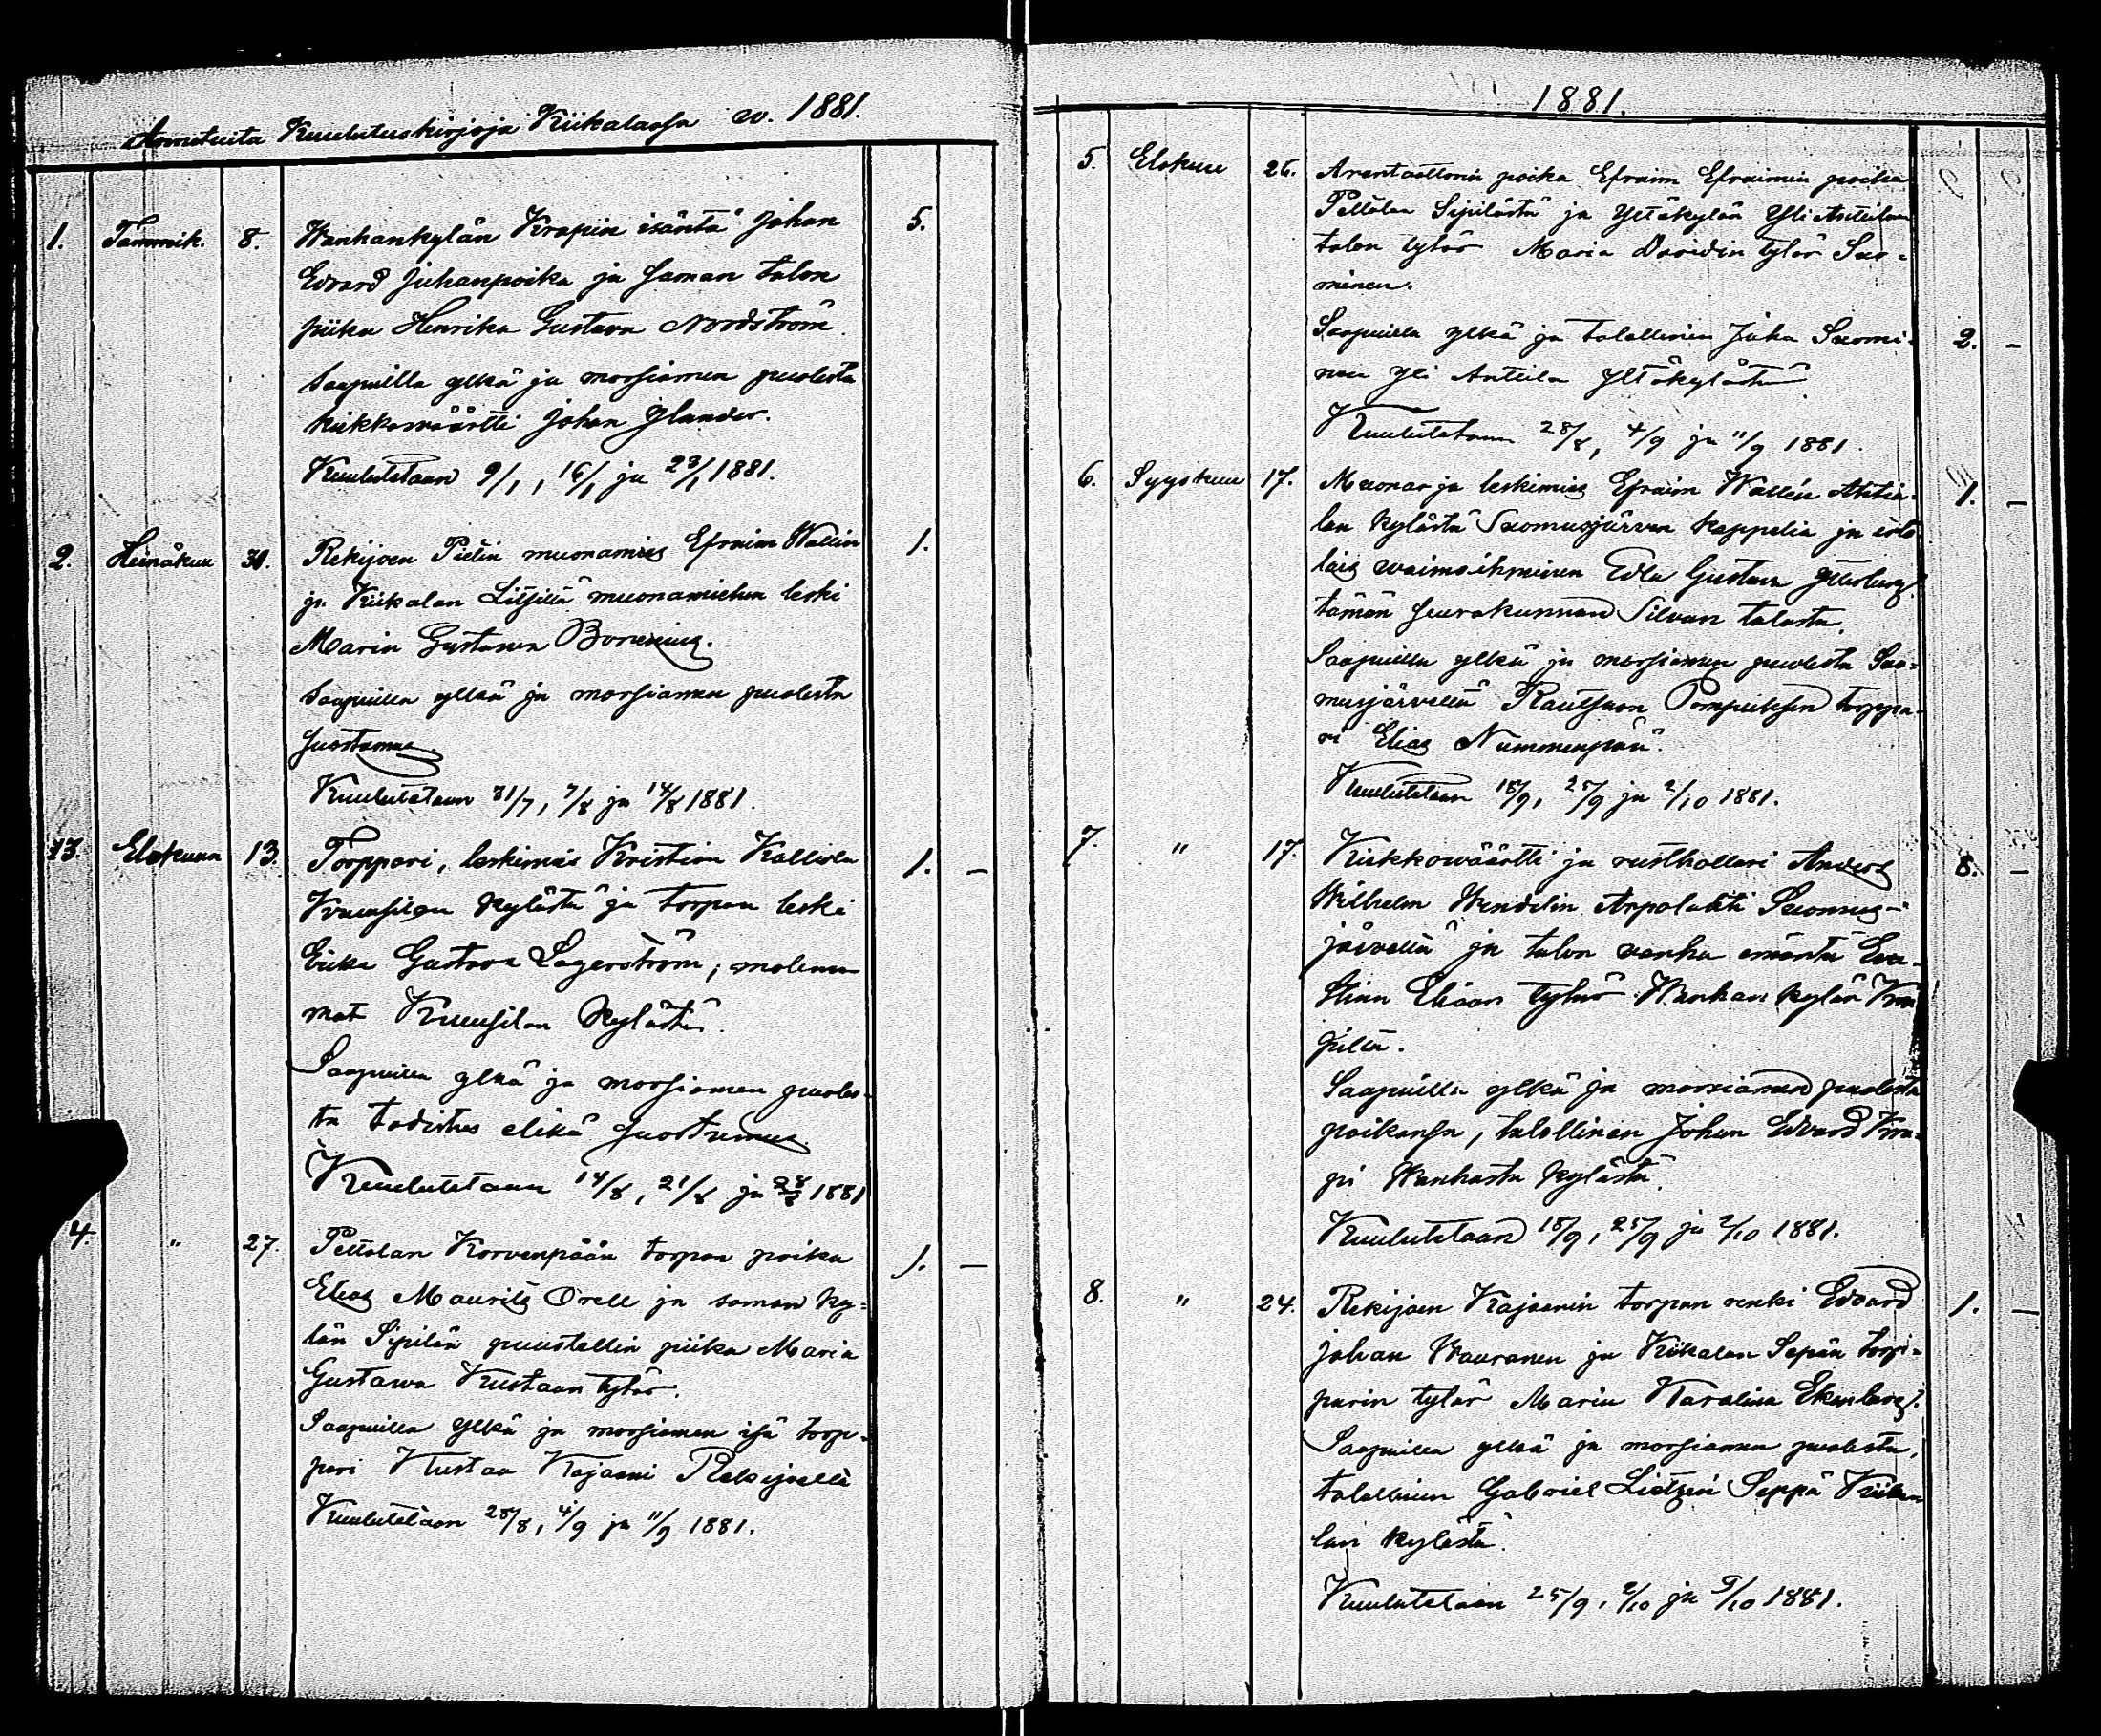 Annetuita Kuulutuskirjoja Kiikalassa w. 1881.
1. Tammik. 8. Wanhankylän Krapin isäntä Johan 5.
Edvard Juhanpoika ja saman talon
piika Henrika Gustava Nordström.
Saapuilla ylkä ja morsiamen puolesta
kirkkowäärtti Johan Ylander.
Kuulutetaan 9/1, 16/1 ja 23/1 1881.
2. Heinäkuu 30. Rekijoen Pietin muonamies Efraim Wallin 1.
ja Kiikalan muonamiehen leski
Maria Gustava Borenius.
Saapuilla ylkä ja morsiamen puolesta
suostumus
Kuulutetaan 31/7, 7/8 ja 14/8 1881.
3. Elokuun 13. Torppari, leskimies Kristian Kalliola 1. –
Kruusilan kylästä ja torpan leski
Erika Gustava Lagerström, molem
mat Kruusilan kylästä.
Saapuilla ylkä ja morsiamen puoles-
ta todistus elikä suostumus.
Kuulutetaan 14/8, 21/8 ja 28/8 1881
4. " 27. Pettälan Korvenpään torpan poika 1. –
Elias Maurits Orell ja saman ky-
län Sipilän puustellin piika Maria
Gustawa Kustaan tytär.
Saapuilla ylkä ja morsiamen isä torp-
pari Kustaa Kajaani Rekijoellä
Kuulutetaan 28/8, 4/9 ja 11/9 1881.
1881.
5. Elokuu 26. Arentaattorin poika Efraim Efraimin poika
Pettälan Sipilästä ja Yltäkylän Yli Anttilan
talon tytär Maria Davidin tytär Suo-
minen.
Saapuilla ylkä ja talollinen Juha Suomi- 2. –
nen Yli Anttila Yltäkylästä
Kuulutetaan 28/8, 4/9 ja 11/9 1881.
6. Syyskuu 17. Muonar ja leskimies Efraim Wallén Ahtia- 1. –
lan kylästä Suomusjärven kappelia ja
waimoihminen Edla Gustava
tämän seurakunnan Silvan talosta.
Saapuilla ylkä ja morsiamen puolesta Suo-
musjärveltä Rautsuon torppa-
ri Elias Nummenpää.
Kuulutetaan 18/9, 25/9 ja 2/10 1881.
7. " 17. Kirkkowäärtti ja rusthollari Anders 8. –
Wilhelm Wendelin Arpalahti Suomus-
järveltä ja talon vanha emäntä Eva
Stina Eliaan tytär Wanhan kylän Kra
pilta.
Saapuilla ylkä ja morsiamen puolesta
poikansa, talollinen Johan Edvard Kra-
pi Wanhasta kylästä.
Kuulutetaan 18/9, 25/9 ja 2/10 1881.
8. " 24. Rekijoen Kajaanin torpan renki Edvard 1. –
Johan Wauranen ja Kiikalan Sepän torp-
parin tytär Maria Karolina Ekenberg.
Saapuilla ylkä ja morsiamen puolesta,
talollinen Gabriel Lietzén Seppä Kiika
lan kylästä.
Kuulutetaan 25/9, 2/10 ja 9/10 1881.